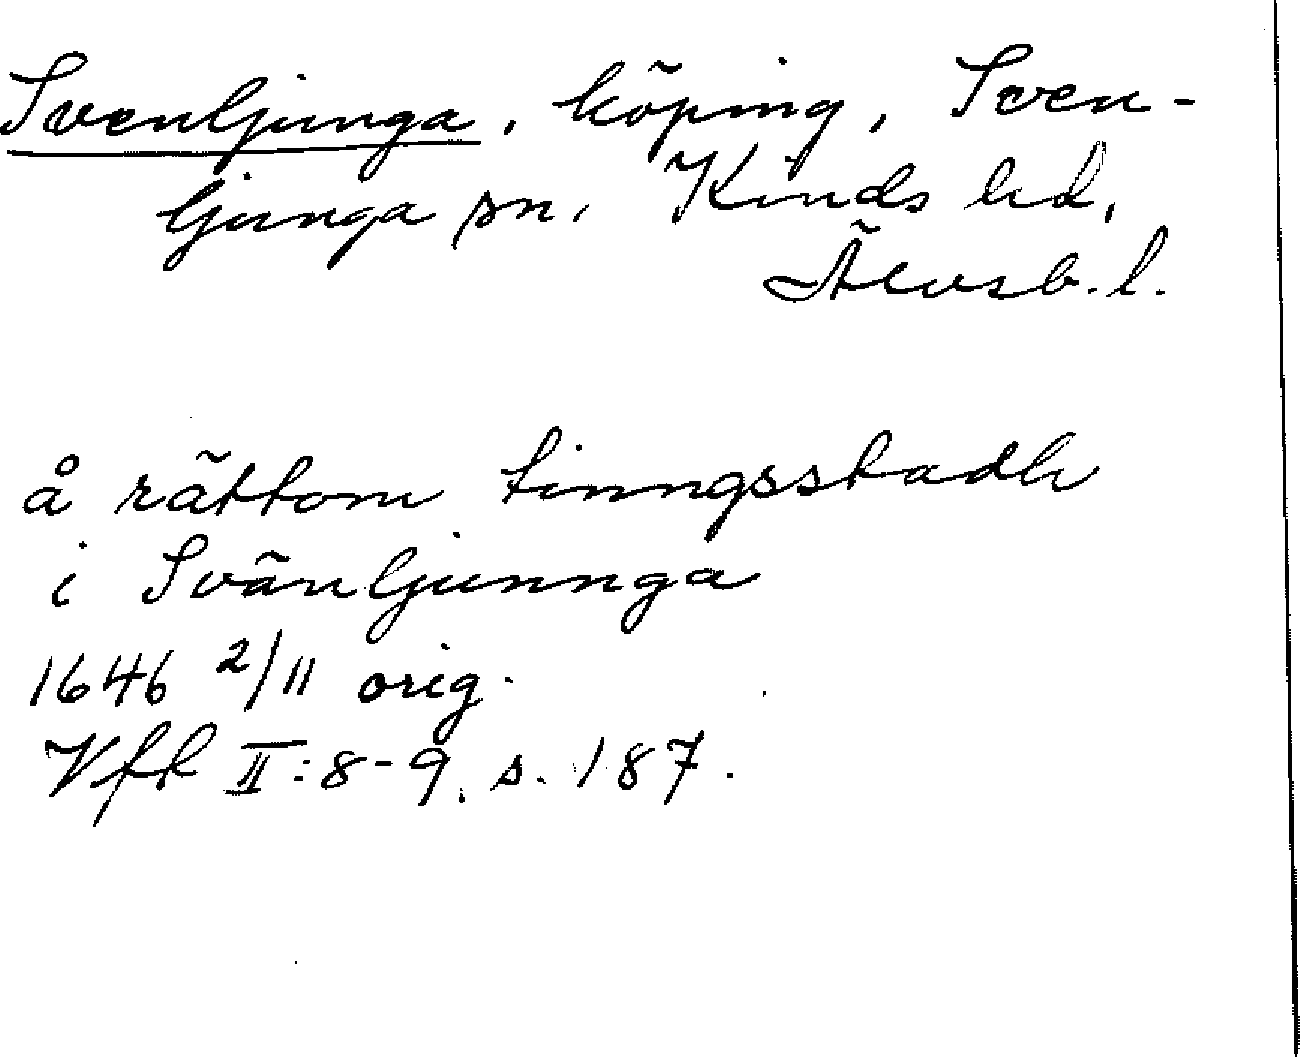 Svenljunga, köping, Sven-
ljunga sn, Kinds hd,
Älvsb. l.
å rättom tinngsstadh
i Svänljunnga
1646 2/11 orig.
Vff II:8-9. s. 187.